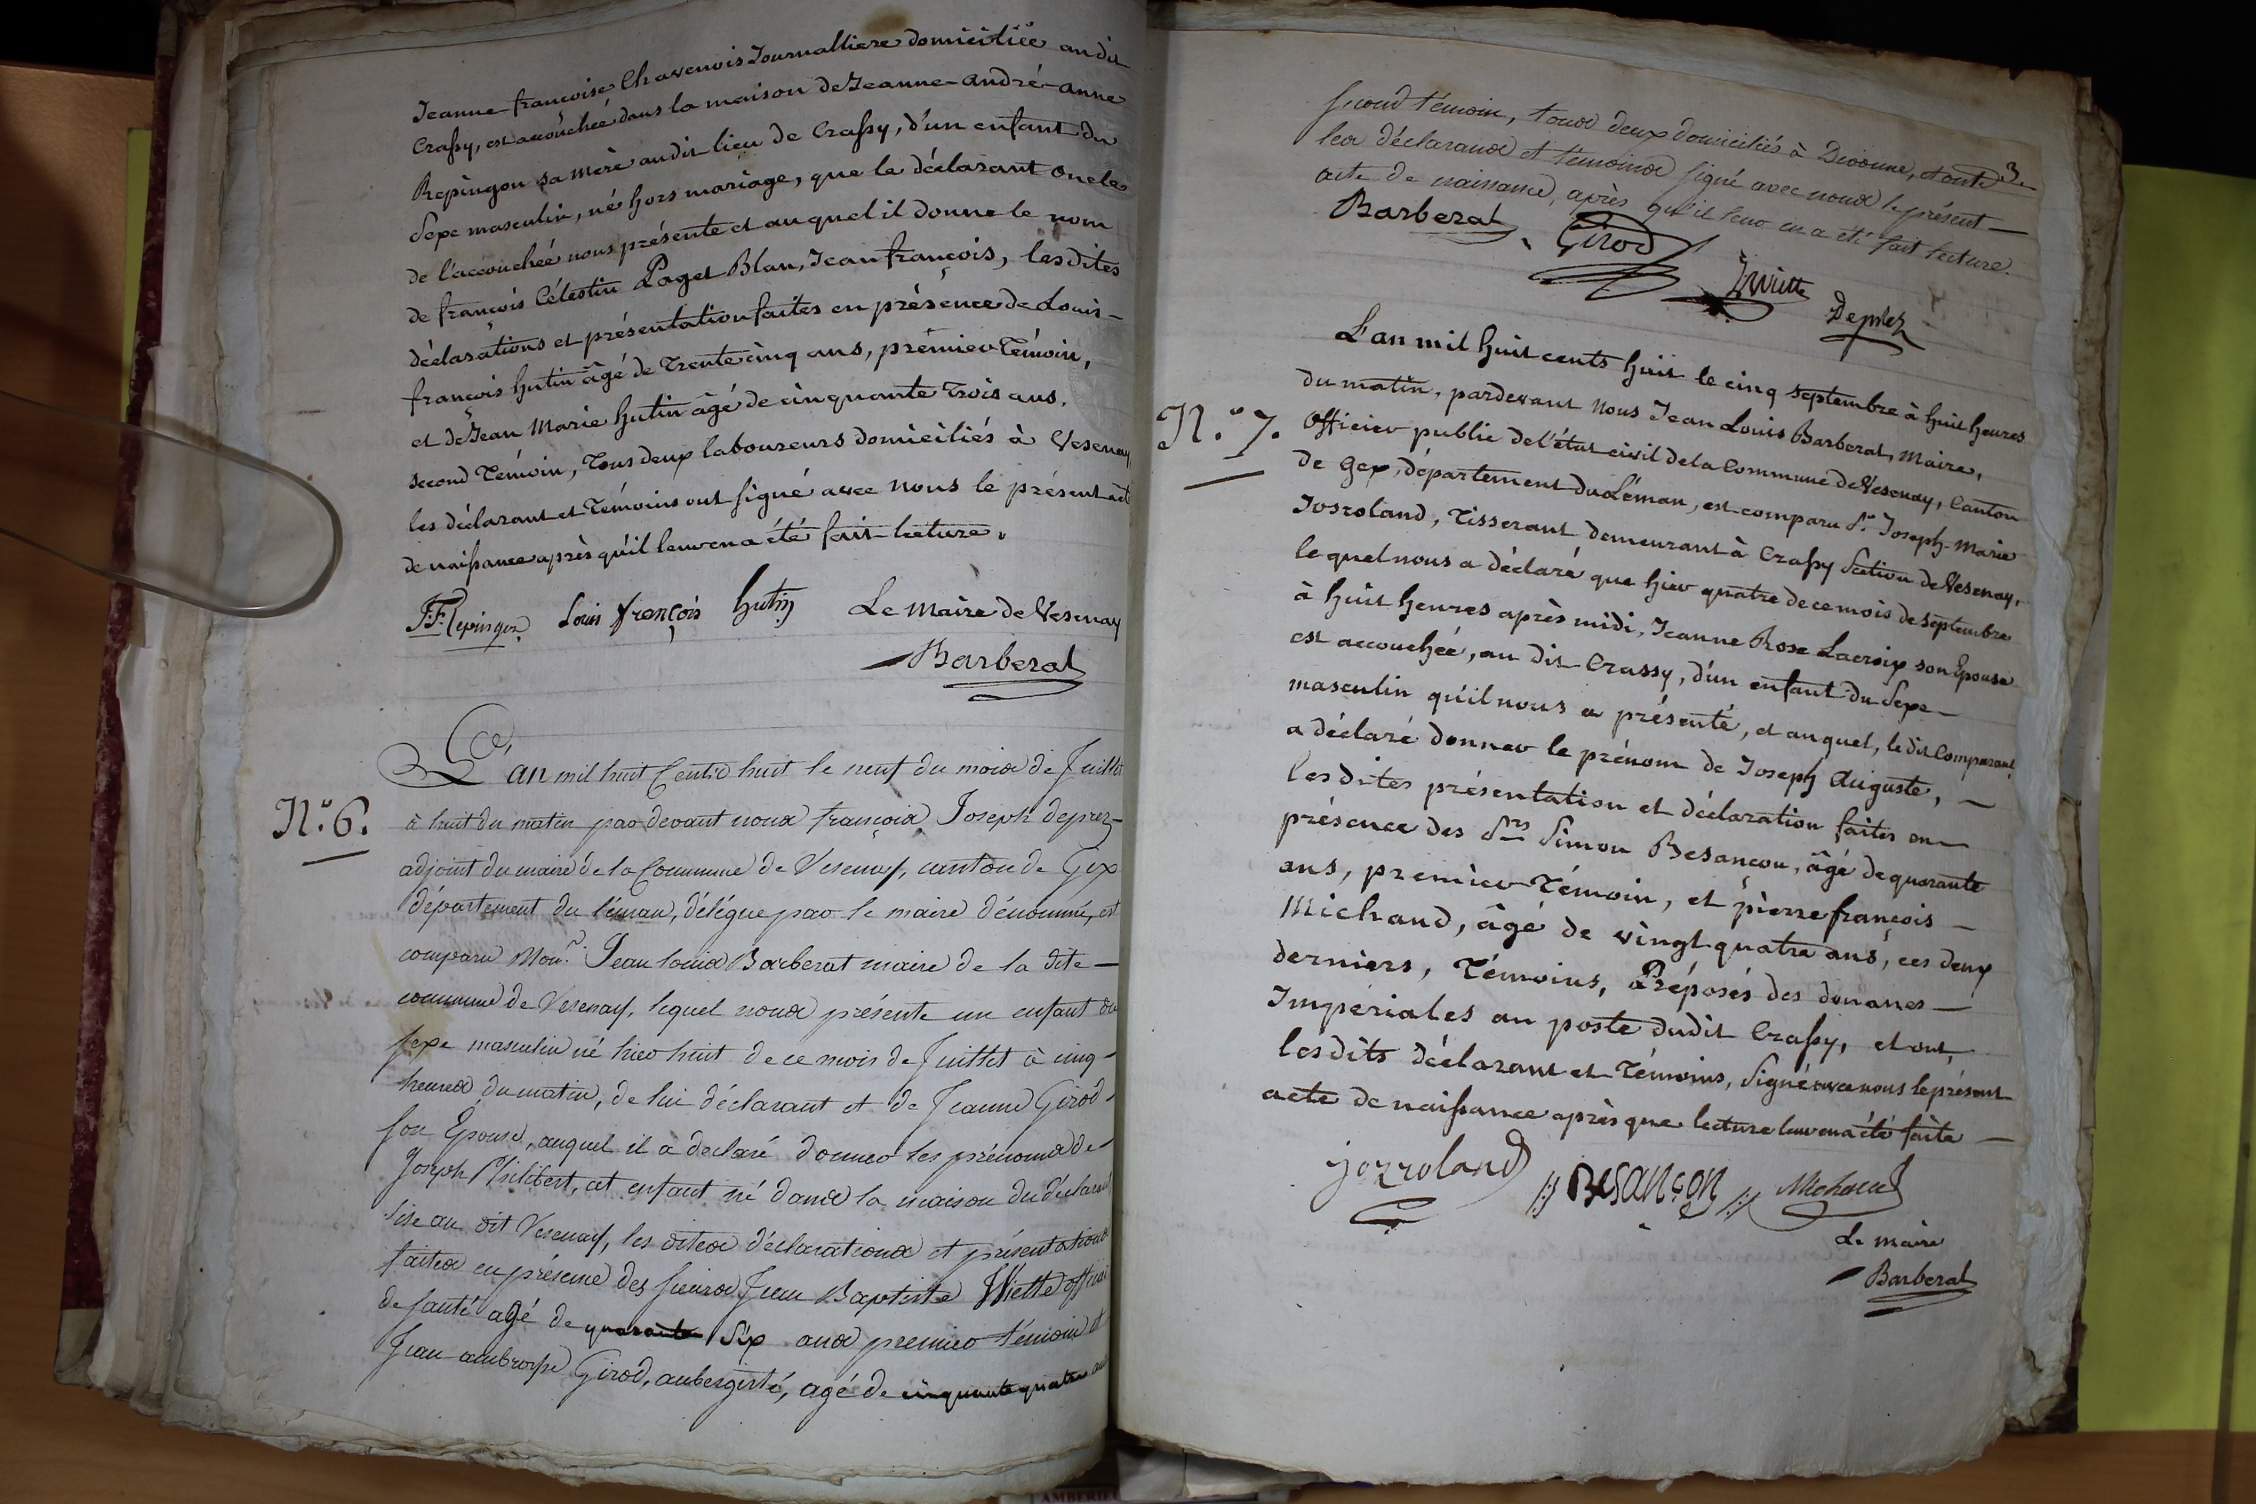 Jeanne françoise Chavenois Journalliere domiciliée au dit
Crassy, est accouchée dans la maison de Jeanne-andré-anne
Repingon sa mère au dit lieu de Crassy, d'un enfant du
Sexe masculin, né hors mariage, que le déclarant Oncle
de l'accouchée nous présente et auquel il donne le nom
de françois Célestin Paget Blan, Jean françois, les dites
déclarations et présentation faites en présence de Louis-
françois hutin âgé de Trente cinq ans, premier Témoin,
et de Jean Marie hutin âgé de cinquante Trois ans,
second Témoin, Tous deux laboureurs domiciliés à Vesenay
les déclarant et Témoins ont signé avec nous le présent acte
de naissance après qu'il leur en a été fait lecture.
Louis françois hutin Le Maire de Vesenay
Barberat
L'an mil huit Cents huit le neuf du mois de Juillet
N.º 6.
à huit du matin par devant nous françois Joseph deprez-
adjoint du maire de la Commune de Vesenay, canton de Gex
département du léman, délégué par le maire dénommé, est
comparu Mon.r Jean louis Barberat maire de la dite-
commune de Vesenay, lequel nous présente un enfant du
sexe masculin né hier huit de ce mois de Juillet à cinq-
heures du matin, de lui déclarant et de Jeanne Girod-
son Epouse, auquel il a declaré donner les prénoms de-
Joseph Philibert, cet enfant né dans la maison du déclarant
sise au dit Vesenay, les dites déclarations et présentations
faites en présence des sieurs Jean Baptiste Wiette officier
de santé agé de quarante Six ans premier témoin et
Jean ambroise Girod, aubergiste, agé de cinquante quatre ans
3
second témoin, tous deux domiciliés à Divonne, et ont
les déclarans et témoins signé avec nous le présent-
acte de naissance, après qu'il leur en a été fait lecture.
Barberat Girod
JWiette
Deprez
L'an mil huit cents huit le cinq septembre à huit heures
du matin, pardevant nous Jean Louis Barberat, Maire,
N.º 7.
Officier public de l'état civil de la Commune de Vesenay, Canton
de Gex, département du Léman, est comparu S.r Joseph-Marie
Josroland, Tisserant demeurant à Crassy Section de Vesenay,
le quel nous a déclaré que hier quatre de ce mois de septembre
à huit heures après midi, Jeanne Rose Lacroix son Epouse
est accouchée, au dit Crassy, d'un enfant du Sexe-
masculin qu'il nous a présenté, et auquel, le dit Comparant
a déclaré donner le prénom de Joseph Auguste, -
les dites présentation et déclaration faites en-
présence des S.rs Simon Besançon, âgé de quarante
ans, premier Témoin, et pierre françois-
Michaud, âgé de vingt quatre ans, ces deux
derniers, Témoins, Préposés des douanes-
Impériales au poste dudit Crassy, et ont,
les dits déclarant et Témoins, signé avec nous le présent
acte de naissance après que lecture leur en a été faite-
jozroland BESANÇON Michaud
Le maire
Barberat